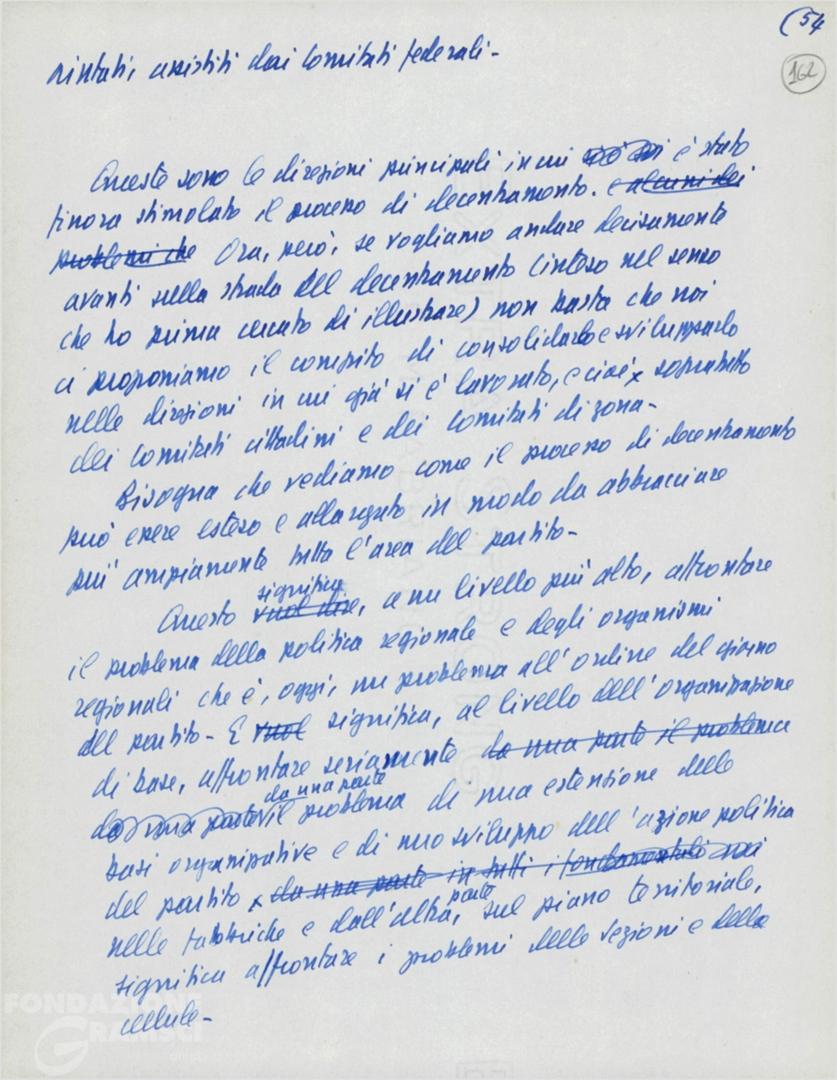 (54
162
rintati, assistiti dai Comitati federali-
Queste sono le direzioni principali in cui è stato
finora stimolato il processo di decentramento. e alcuni dei
problemi che Ora, però, se vogliamo andare decisamente
avanti sulla strada del decentramento (inteso nel senso
che ho prima cercato di illustrare) non basta che noi
ci proponiamo il compito di consolidarlo e svilupparlo
nelle direzioni in cui già si è lavorato, e cioè x sopratutto
dei Comitati cittadini e dei Comitati di zona-
Bisogna che vediamo come il processo di decentramento
può essere esteso e allargato in modo da abbracciare
più ampiamente tutta l'area del partito-
significa
Questo vuol dire, a un livello più alto, affrontare
il problema della politica regionale e degli organismi
regionali che è, oggi, un problema all'ordine del giorno
del partito- E vuol significa, al livello dell'organizzazione
di base, affrontare seriamente da una parte il problema
da una parte
da una parte il problema di una estensione delle
basi organizzative e di uno sviluppo dell'azione politica
del partito x da una parte in tutti i fondamentali
parte
nelle fabbriche e dall'altra, sul piano territoriale,
significa affrontare i problemi delle sezioni e della
cellule-
FONDAZIONE
GRAMSCI